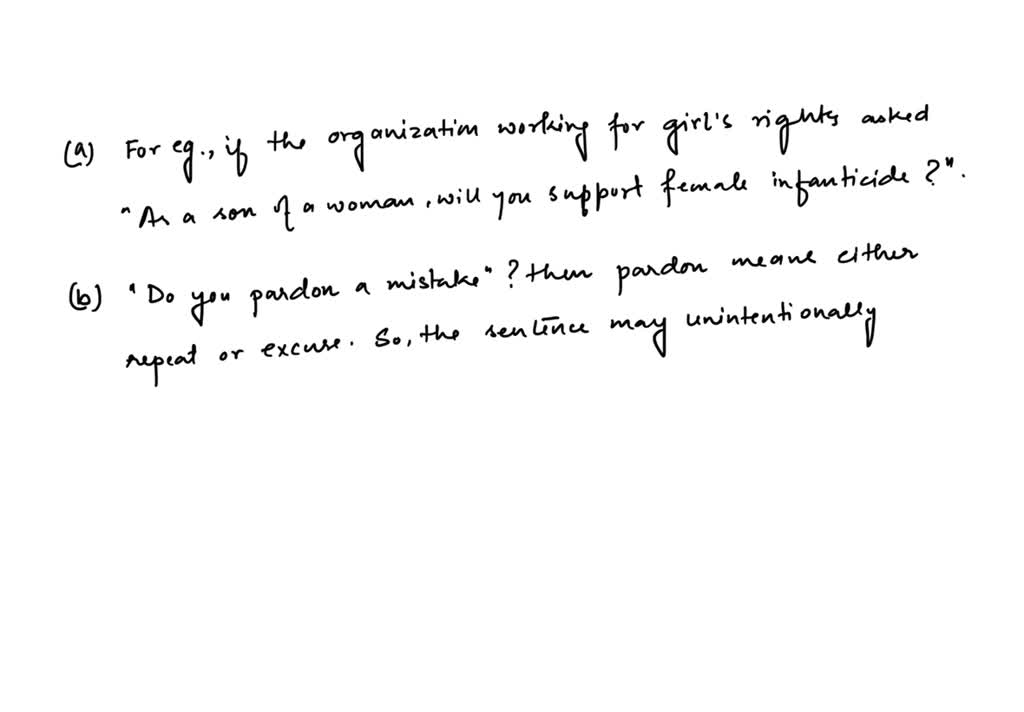 (a) For eg., if the organization working for girl's rights asked
"As a son of a woman, will you support female infanticide?".
(b) "Do you pardon a mistake"? then pardon means either
repeat or excuse. So, the sentence may unintentionally